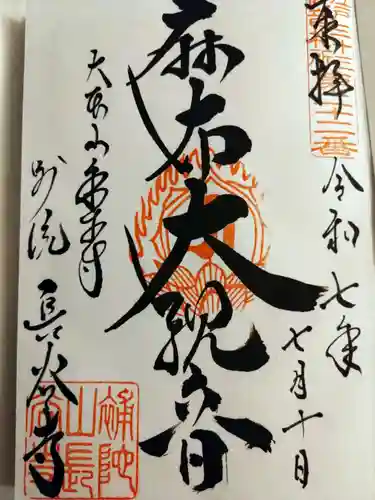 奉拝
令和七年
七月十日
麻布大観音
大本山永平寺
別院 長谷寺
補陀
山長
谷寺